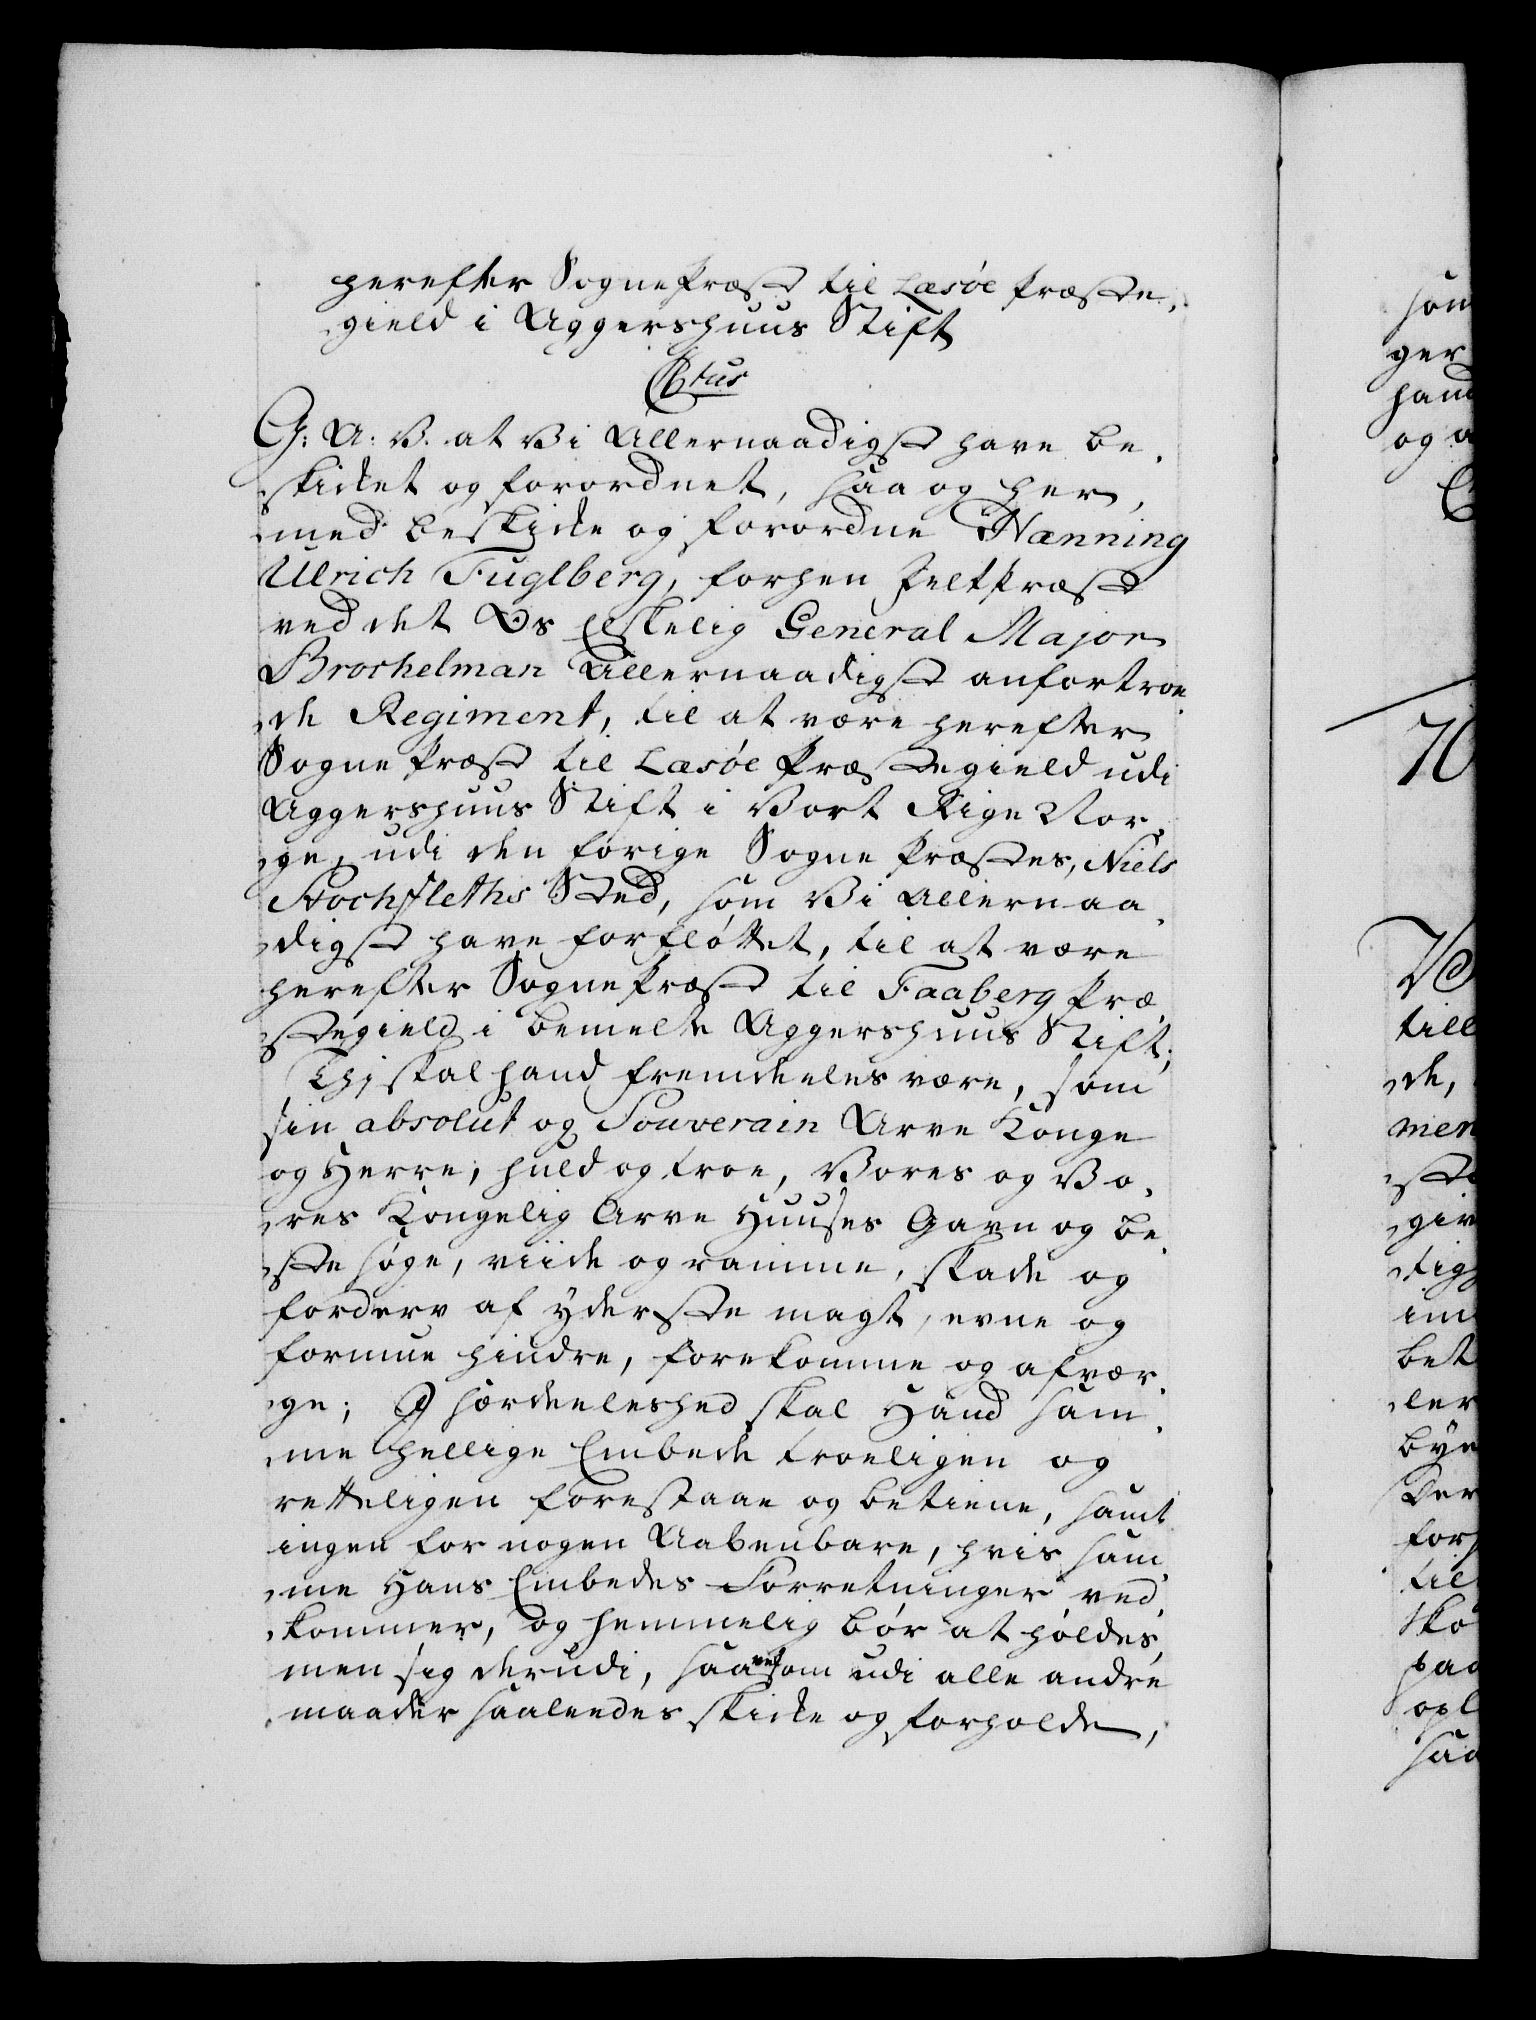 herefter Sognepræst til Læsøe præste,,
gield i Aggershuus Stift
C6tus
G: A: V. at Vi Allernaadigst have be,
skicket og forordnet, saa og her,
med beskicke og forordne Hænning
Ulrich Fuglberg, forhen Feltpræst
ved det Os Elskelig General Major
Brochelman Allernaadigst anfortroe,
de Regiment, til at være herefter
Sognepræst til Læsøe Præstegield udi
Aggershuus Stift i Vort Rige Nor,
ge, udi den forige Sogne Præstes, Niels
Stochfleths Sted, som Vi Allernaa,
digst have forfløttet, til at være
herefter Sognepræst til Faaberg Præ,
stegield i bemelte Aggershuus Stift;
Thj skal hand fremdeeles være, som
sin absolut og Souverain Arve Konge
og Herre, huld og troe, Vores og Vo,
res Kongelig Arve Huuses Gavn og be,
ste søge, viide og ramme, skade og
forderv af yderste magt, evne og
formue hindre, forekomme og afvær,
ge; I særdeeleshed skal Hand sam,
me hellige Embede troeligen og
retteligen forestaae og betiene, samt
ingen for nogen Aabenbare, hvis sam,
me Hans Embedes Forretninger ved,
kommer, og hemmelig bør at høldes,
men sig derudi, saavelsom udi alle andre
maader saaleedes skicke og forholde,
som
ger
hand
og a
till
de,
men
ste
giv
tig
im
bet
ler
bye
Der
for
til
sko
paa
opl
saa